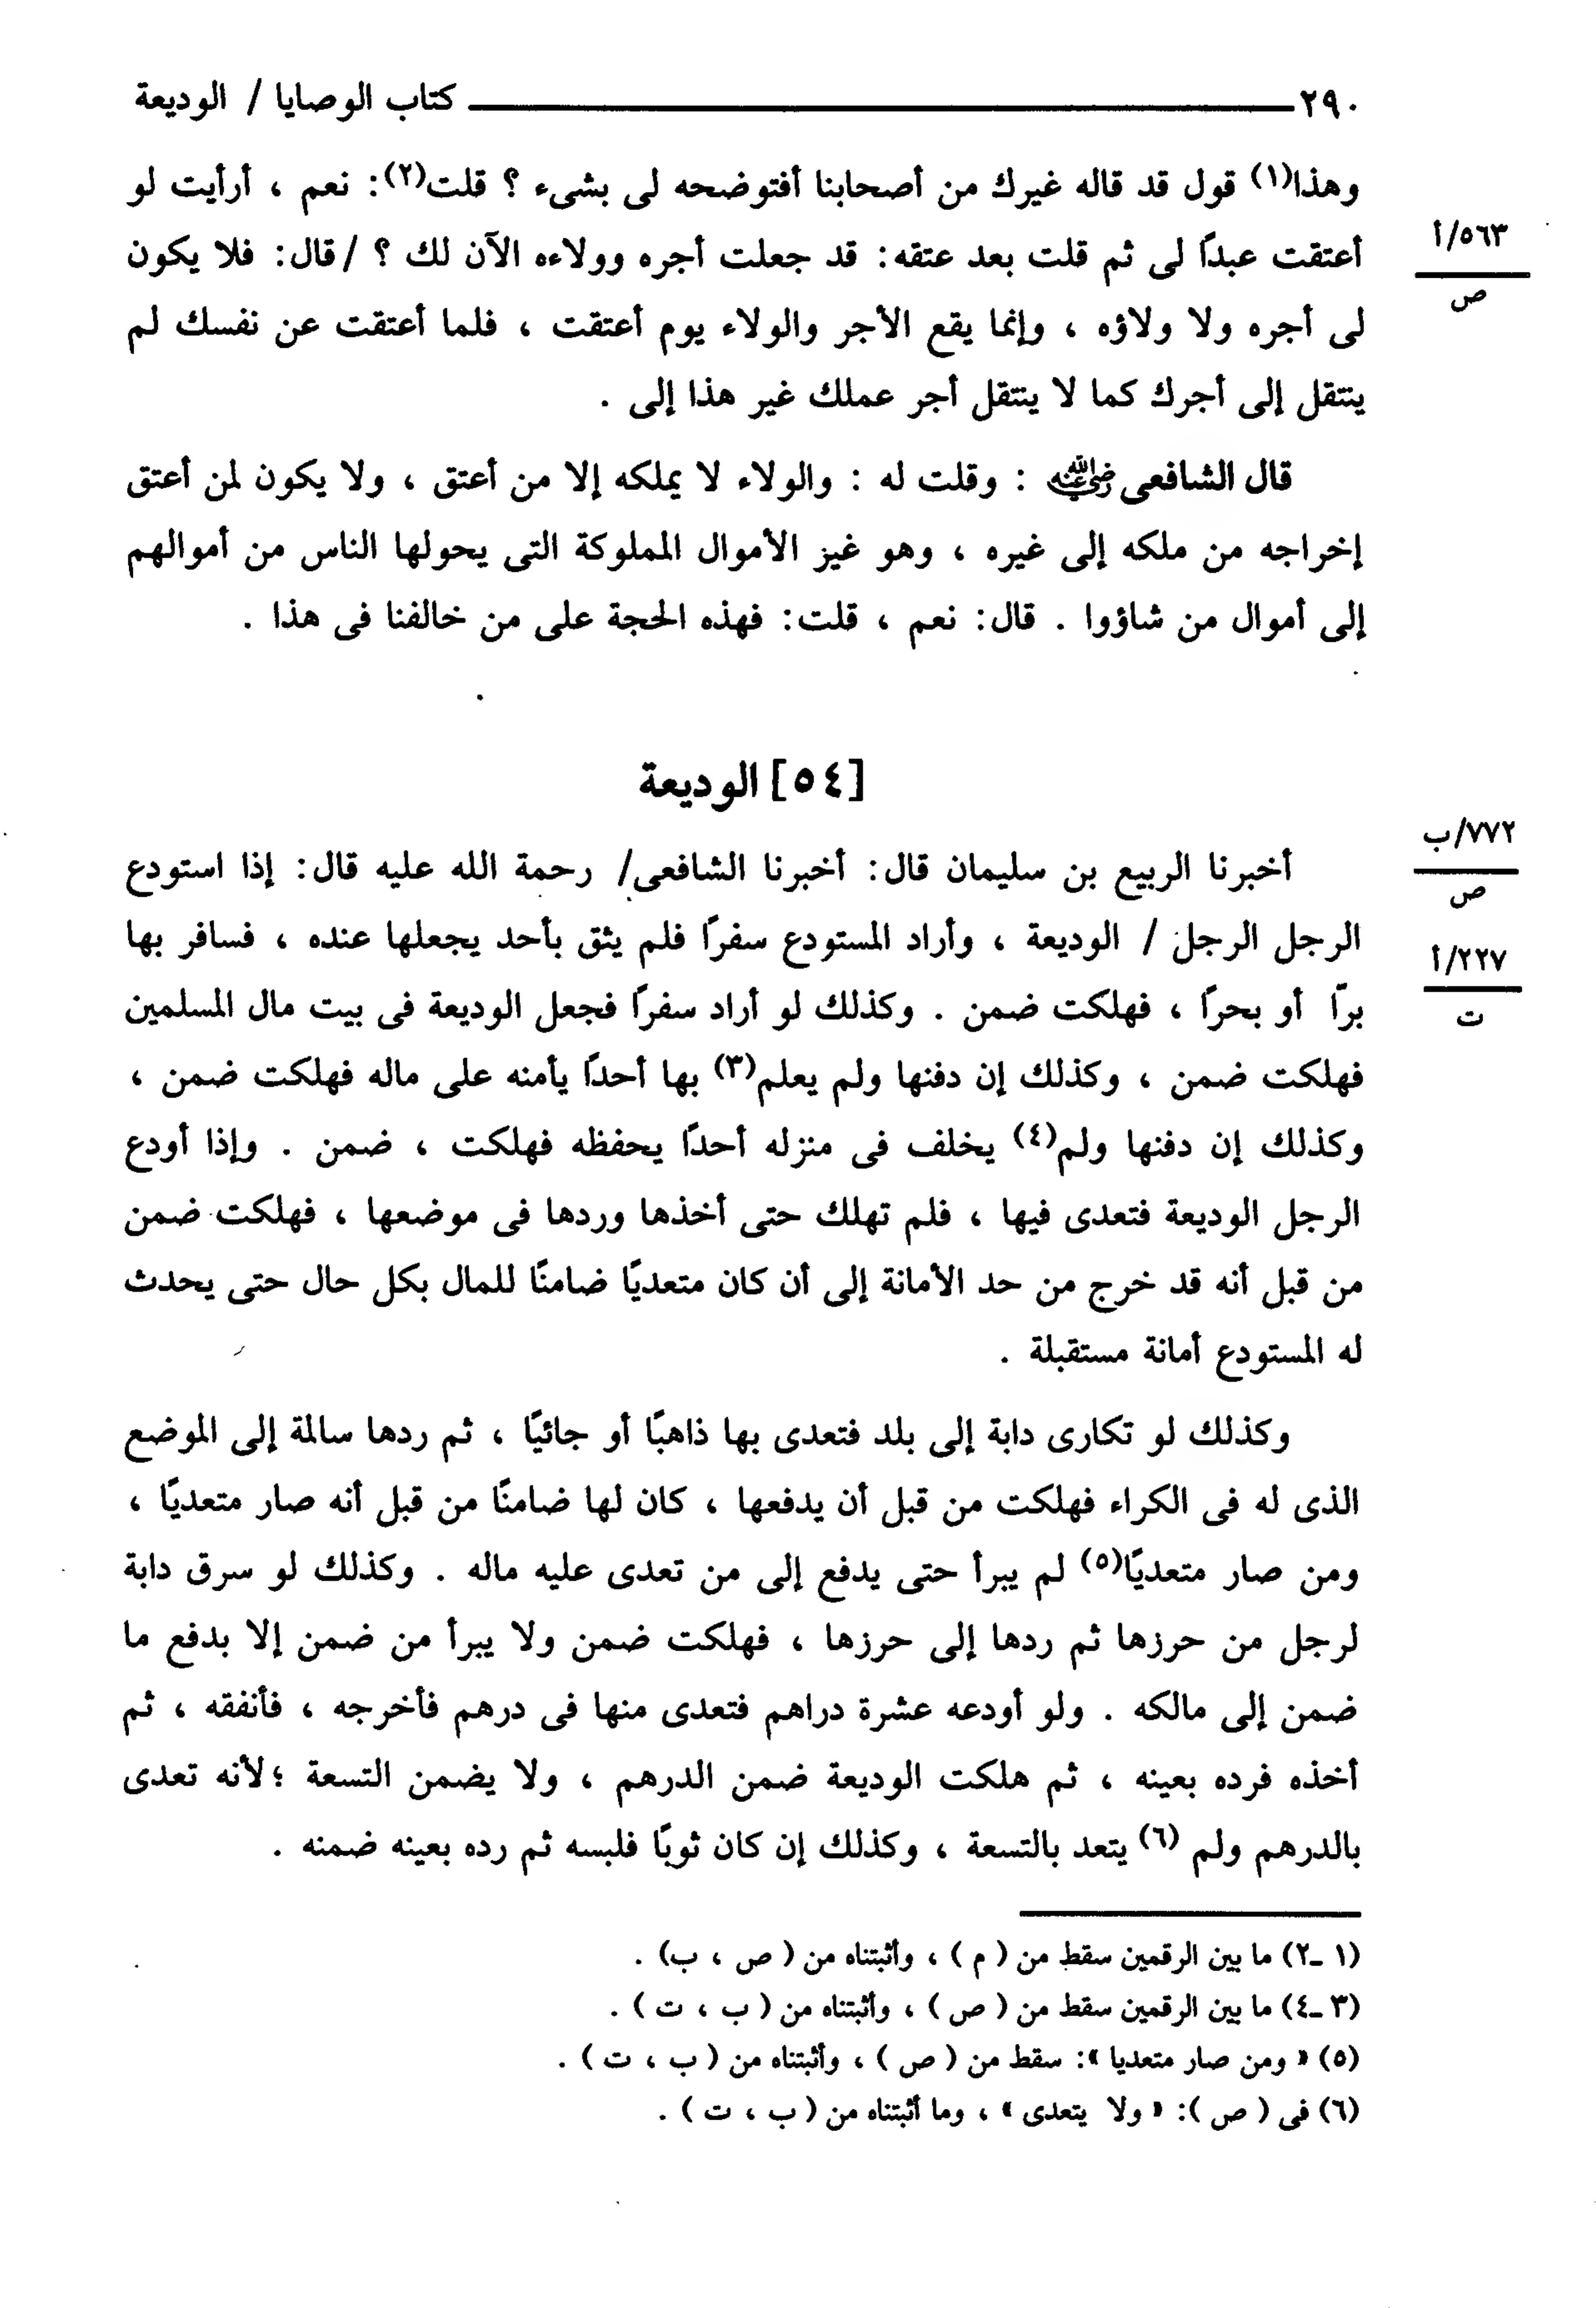 ٢٩٠ كتاب الوصايا / الوديعة
وهذا(١) قول قد قاله غيرك من أصحابنا أفتوضحه لى بشىء ؟ قلت(٢): نعم ، أرأيت لو
أعتقت عبدًا لى ثم قلت بعد عتقه: قد جعلت أجره وولاءه الآن لك ؟ /قال: فلا يكون
٥٦٣/أ
ص
لى أجره ولا ولاؤه ، وإنما يقع الأجر والولاء يوم أعتقت ، فلما أعتقت عن نفسك لم
ينتقل إلى أجرك كما لا ينتقل أجر عملك غير هذا إلى .
قال الشافعى رضي الله عنه : وقلت له : والولاء لا يملكه إلا من أعتق ، ولا يكون لمن أعتق
إخراجه من ملكه إلى غيره ، وهو غيز الأموال المملوكة التى يحولها الناس من أموالهم
إلى أموال من شاؤوا . قال: نعم ، قلت: فهذه الحجة على من خالفنا فى هذا .
[٥٤] الوديعة
أخبرنا الربيع بن سليمان قال: أخبرنا الشافعى/ رحمة الله عليه قال: إذا استودع
٧٧٢/ب
ص
الرجل الرجل / الوديعة ، وأراد المستودع سفرًا فلم يثق بأحد يجعلها عنده ، فسافر بها
٢٢٧/أ
ت
برّا أو بحرًا ، فهلكت ضمن . وكذلك لو أراد سفرًا فجعل الوديعة فى بيت مال المسلمين
فهلكت ضمن ، وكذلك إن دفنها ولم يعلم(٣) بها أحدًا يأمنه على ماله فهلكت ضمن ،
وكذلك إن دفنها ولم(٤) يخلف فى منزله أحدًا يحفظه فهلكت ، ضمن . وإذا أودع
الرجل الوديعة فتعدى فيها ، فلم تهلك حتى أخذها وردها فى موضعها ، فهلكت ضمن
من قبل أنه قد خرج من حد الأمانة إلى أن كان متعديًا ضامنًا للمال بكل حال حتى يحدث
له المستودع أمانة مستقبلة .
وكذلك لو تكارى دابة إلى بلد فتعدى بها ذاهبًا أو جائيًا ، ثم ردها سالمة إلى الموضع
الذى له فى الكراء فهلكت من قبل أن يدفعها ، كان لها ضامنًا من قبل أنه صار متعديًا ،
ومن صار متعديًا(٥) لم يبرأ حتى يدفع إلى من تعدى عليه ماله . وكذلك لو سرق دابة
لرجل من حرزها ثم ردها إلى حرزها ، فهلكت ضمن ولا يبرأ من ضمن إلا بدفع ما
ضمن إلى مالكه . ولو أودعه عشرة دراهم فتعدى منها فى درهم فأخرجه ، فأنفقه ، ثم
أخذه فرده بعينه ، ثم هلكت الوديعة ضمن الدرهم ، ولا يضمن التسعة ؛لأنه تعدى
بالدرهم ولم (٦) يتعد بالتسعة ، وكذلك إن كان ثوبًا فلبسه ثم رده بعينه ضمنه .
(١ -٢) ما بين الرقمين سقط من ( م ) ، وأثبتناه من ( ص ، ب) .
(٣ -٤) ما بين الرقمين سقط من ( ص ) ، وأثبتناه من ( ب ، ت ) .
(٥) « ومن صار متعديا »: سقط من ( ص ) ، وأثبتناه من ( ب ، ت ) .
(٦) فى ( ص ): « ولا يتعدى » ، وما أثبتناه من ( ب ، ت ) .